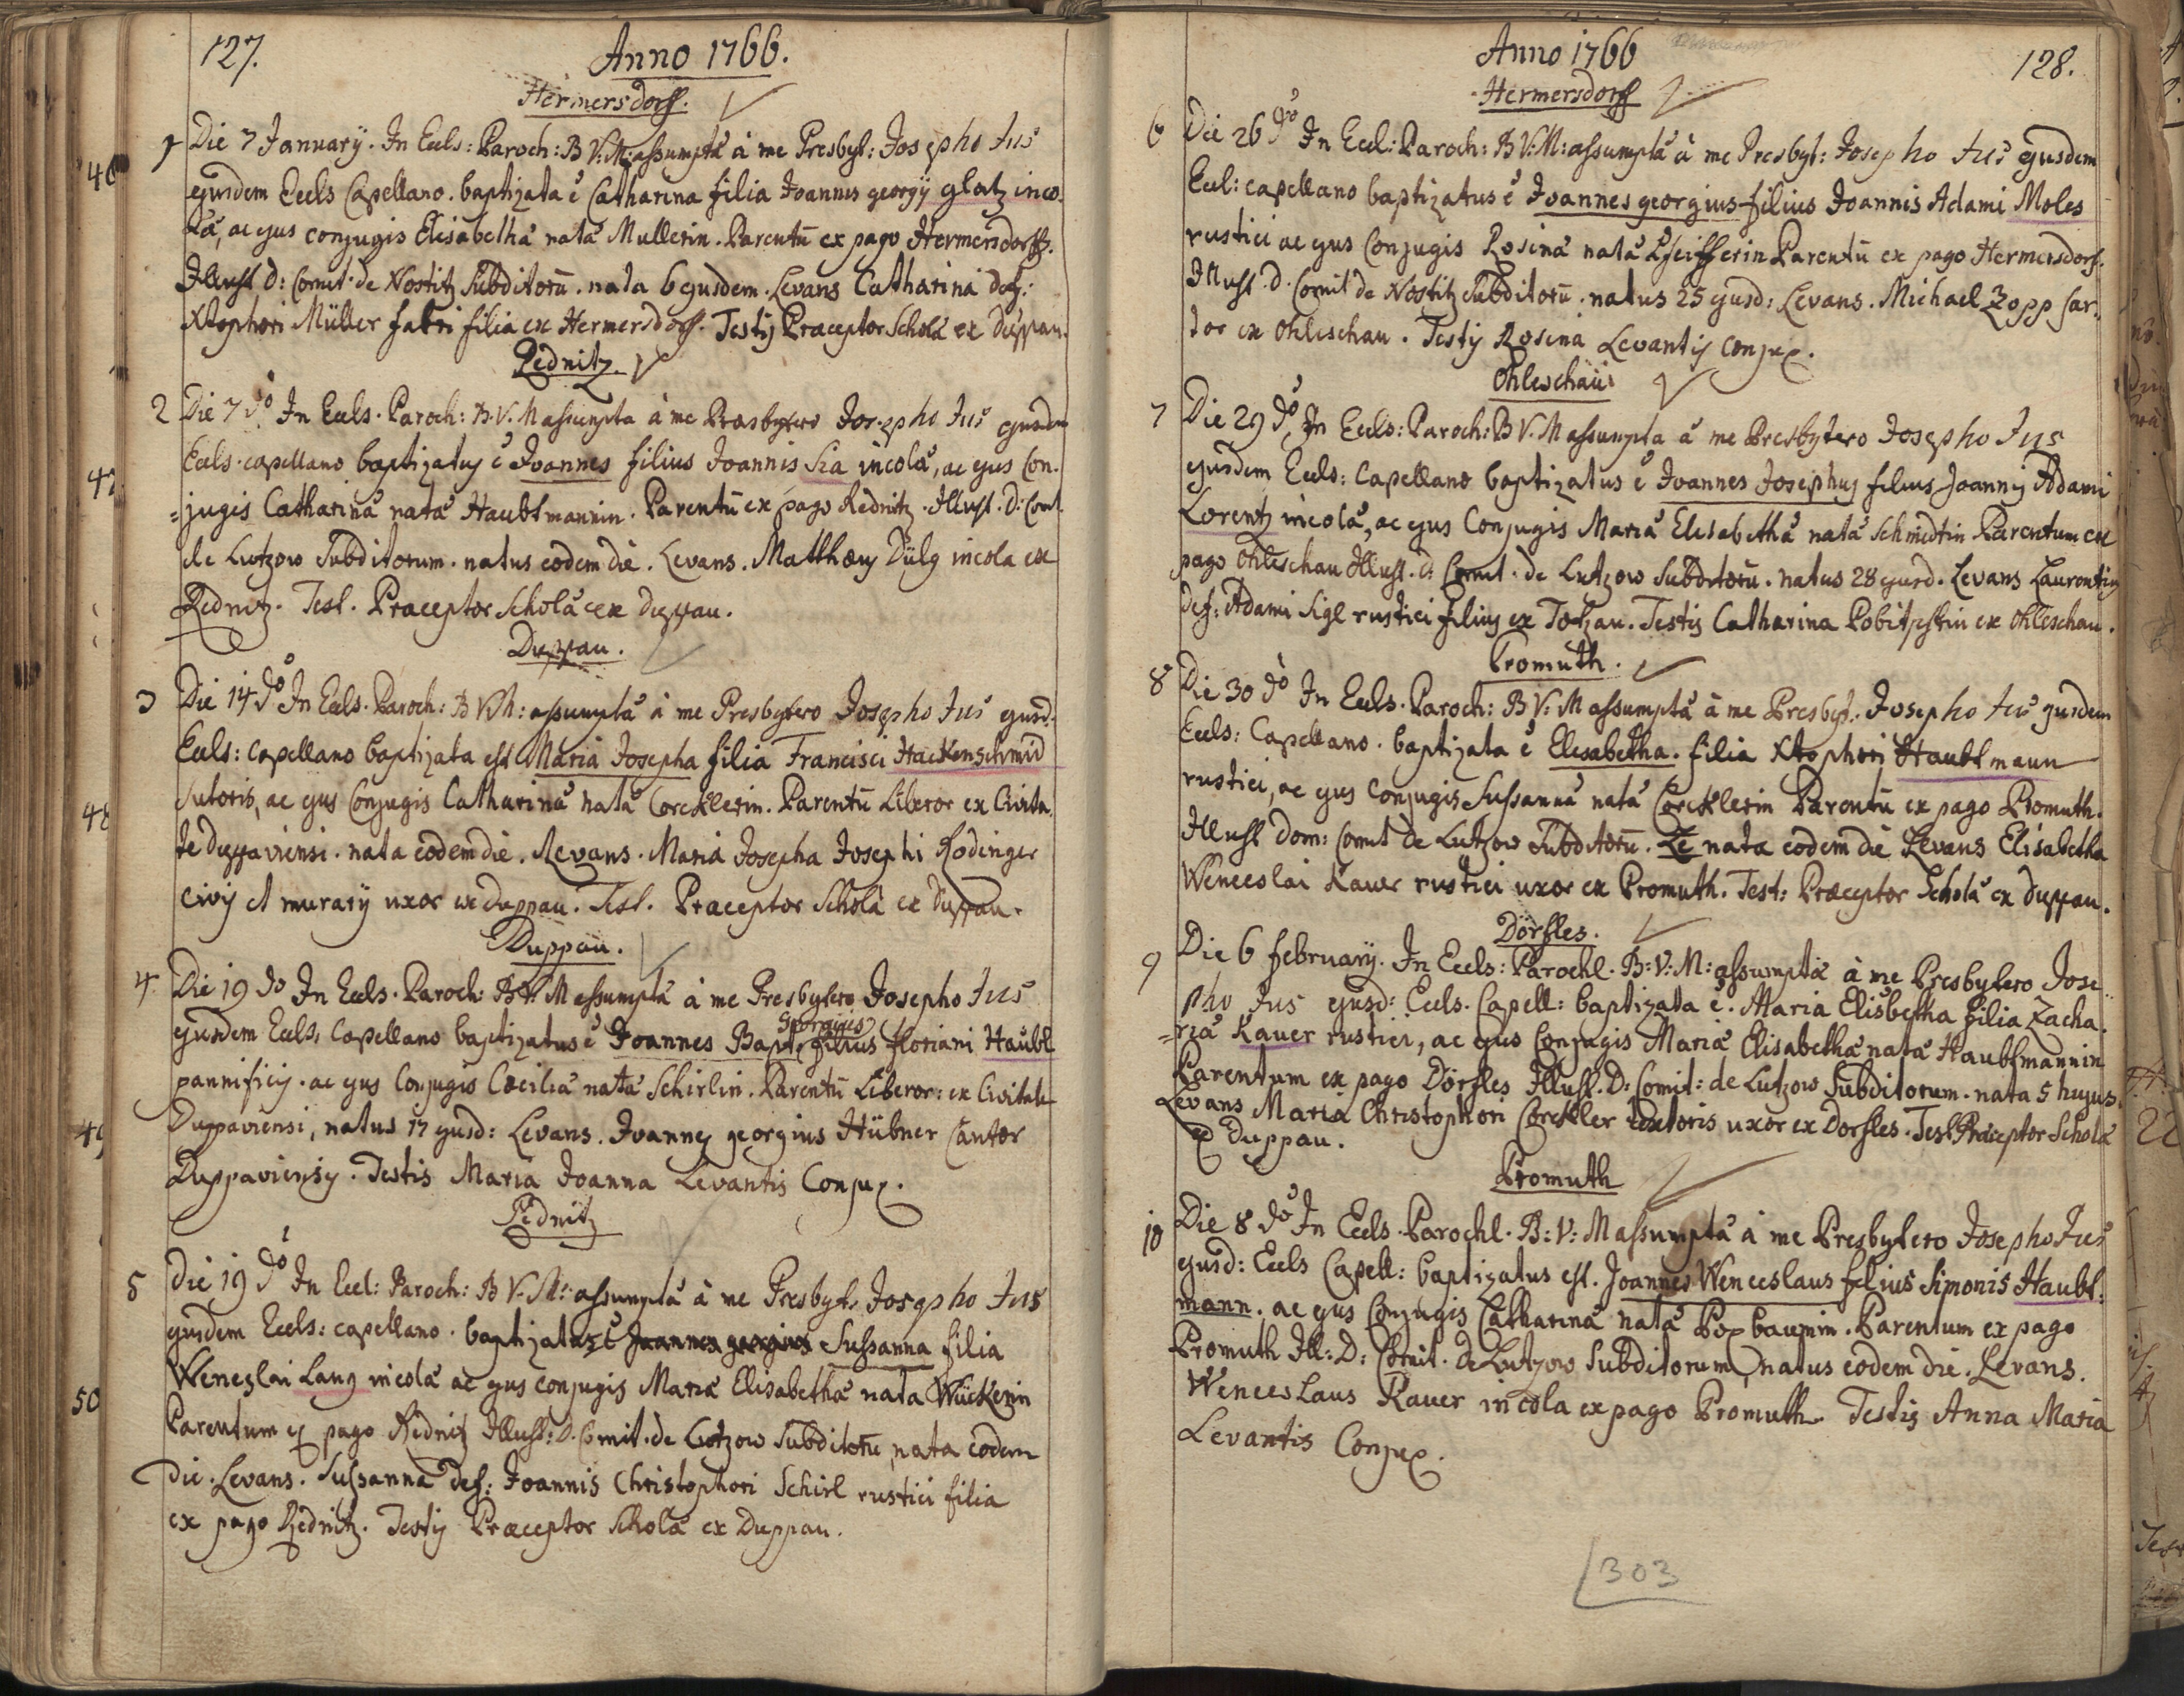 127.
Anno 1766.
Hermersdorff.
1 Die 7 January. In Eccls: Paroch: B V: M: assumptâ à me Presbyt: Josepho Jus
ejusdem Eccls Capellano. baptizata ẽ Catharina filia Joannis georgÿ glatz inco.
lâ, ac ejus conjugis Elisabethâ natâ Mullerin. Parentū ex pago Hermersdorff.
Illust D: Comit. de Nostitz Subditorū. nata 6 ejusdem. Levans Catharina def:
Xtophori Müller fabri filia ex Hermersdorf. Testis Præceptor Scholâ ex Duppau.
Rednitz.
2 Die 7 dõ In Eccls. Paroch: B. V. M assumpta à me Præsbytero Josepho Jus ejusdem
Eccls. capellano baptizatus ẽ Joannes filius Joannis Sia incolâ, ac ejus Con.
=jugis Catharinâ natâ Haubtmannin. Parentū ex pago Rednitz. Illust. D: Comt.
de Lutzow Subditorum. natus eodem die. Levans. Matthæus Dülg incola ex
Rednitz. Test. Præceptor Scholâ ex Duppau.
Duppau.
3 Die 14 dõ In Eccls. Paroch: B V M: assumptâ à me Presbytero Josepho Jus ejusd.
Eccls: capellano baptizata est Maria Josepha filia Francisci Hackenschmid
Sutoris, ac ejus Conjugis Catharinâ natâ Corcklerin. Parentū Liberor ex Civita
te Duppaviensi. nata eodem die. Levans. Maria Josepha Josephi Rodinger
civis et murarÿ uxor ex Duppau. Test. Præceptor Scholâ ex Duppau.
Duppau.
4 Die 19 do In Eccls. Paroch: B V. M assumptâ à me Presbytero Josepho Jus
georgius
ejusdem Eccls, Capellano baptizatus ẽ Joannes Bapt. filius floriani Haubt
pannificis. ac ejus Conjugis Cæciliâ natâ Schirlin. Parentū Liberor: ex Civitate
Duppaviensi, natus 17 ejusd: Levans. Joannes georgius Hübner Cantor
Duppaviensis. Testis Maria Joanna Levantis Conjux.
Rednitz
5 Die 19 dõ In Eccl: Paroch: B V. M: assumptâ à me Presbyt. Josepho Jus
ejusdem Eccls: capellano. baptizatus ẽ Joannes georgius Sussanna filia
Wenezlai Lang incolâ ac ejus conjugis Mariâ Elisabethâ nata Wückerin
Parentum ex pago Rednitz Illust: D. Comit. de Lutzow Subditorū, nata eodem
Die. Levans. Sussanna def: Joannis Christophori Schirl rustici filia
ex pago Rednitz. Testis Præceptor Scholâ ex Duppau.
46
47
48
49
50
Anno 1766
128.
Hermersdorff
6 Die 26 dõ In Eccl: Paroch: B V: M: assumptâ à me Presbyt: Josepho Jus ejusdem
Eccl: capellano baptizatus ẽ Joannes georgius filius Joannis Adami Moles
rustici ac ejus Conjugis Rosinâ natâ Pfeifferin Parentū ex pago Hermersdorf.
Illust. D. Comit de Nostitz Subditorū. natus 25 ejusd: Levans. Michael Zopp sar.
tor ex Ohleschau. Testis Rosina Levantis Conjux.
Ohleschau
7 Die 29 dõ, In Eccls: Paroch: B V. M assumpta à me Presbytero Josepho Jus
ejusdem Eccls: Capellano baptizatus ẽ Joannes Josephus filius Joannis Adami
Lorentz incolâ, ac ejus Conjugis Mariâ Elisabethâ natâ Schmidtin Parentum ex
pago Ohleschau Illust. D Comit. de Lutzow Subditorū. natus 28 ejusd. Levans Laurentius
def: Adami Sigl rustici filius ex Totzau. Testis Catharina Pobitschtin ex Ohleschau.
Promuth.
8 Die 30 dõ In Eccls. Paroch: B V: M assumptâ à me Presbyt: Josepho Jus ejusdem
Eccls: Capellano. baptizata ẽ Elisabetha. filia Xtophori Haubtmann
rustici, ac ejus Conjugis Sussannâ natâ Corcklerin Parentū ex pago Promuth.
Illust Dom: Comit de Lutzow Subditorū. Le nata eodem die Levans Elisabetha
Wenceslai Kauer rustici uxor ex Promuth. Test: Præceptor Scholâ ex Duppau.
Dörfles.
9 Die 6 february. In Eccls: Parochl. B: V: M: assumptâ à me Presbytero Jose
pho Jus ejusd: Eccls. Capell: baptizata ẽ. Maria Elisbetha filia Zacha.
=riâ Kauer rustici, ac ejus Conjugis Mariâ Elisabethâ natâ Haubtmannin
Parentum ex pago Dörfles Illust. D: Comit: de Lutzow Subditorum. nata 5 hujus.
Levans Maria Christophori Corckler textoris uxor ex Dorfles. Test Præceptor Scholâ
ex Duppau.
Promuth
10 Die 8 dõ In Eccls. Parochl. B: V: M assumptâ à me Presbytero Josepho Jus
ejusd: Eccls Capell: baptizatus est. Joannes Wenceslaus filius Simonis Haubt:
mann. ac ejus Conjugis Catharinâ natâ Poxbaumin. Parentum ex pago
Promuth Ill: D: Comit. de Lutzow Subditorum, natus eodem die. Levans.
Wenceslaus Kauer incola ex pago Promuth. Testis Anna Maria
Levantis Conjux.
303
22